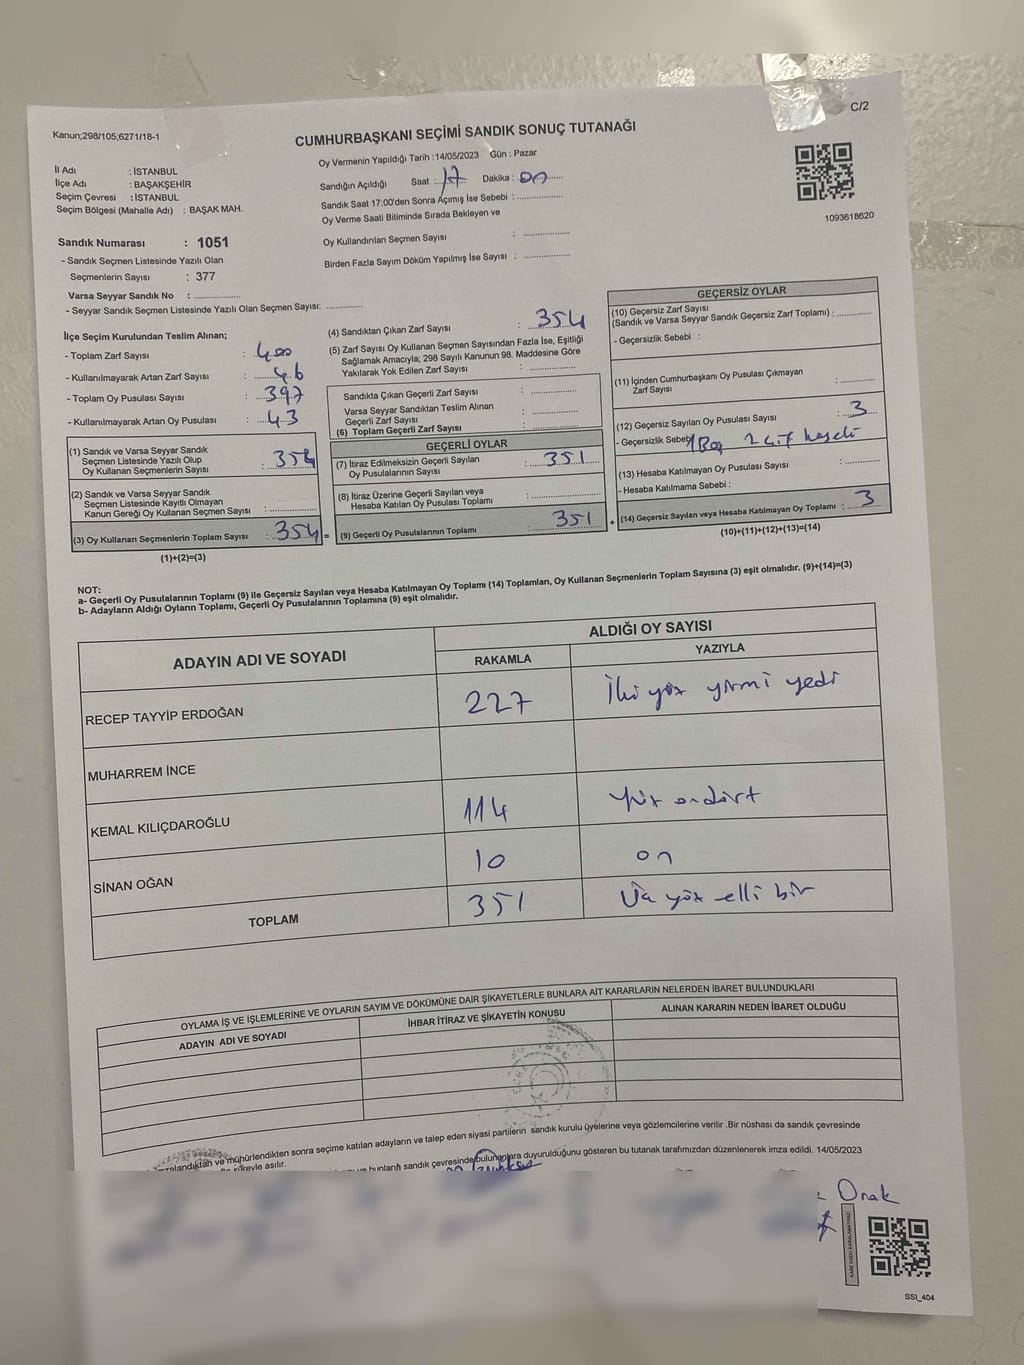 Kanun;298/105;6271/18-1
C/2
CUMHURBAŞKANI SEÇİMİ SANDIK SONUÇ TUTANAĞI
İl Adı : İSTANBUL
İlçe Adı : BAŞAKŞEHİR
Seçim Çevresi : İSTANBUL
Seçim Bölgesi (Mahalle Adı) : BAŞAK MAH.
Oy Vermenin Yapıldığı Tarih : 14/05/2023 Gün : Pazar
Sandığın Açıldığı Saat : 17 Dakika : 00
Sandık Saat 17:00'den Sonra Açımış İse Sebebi :
Oy Verme Saati Bitiminde Sırada Bekleyen ve
Oy Kullandırılan Seçmen Sayısı :
Birden Fazla Sayım Döküm Yapılmış İse Sayısı :
1093618620
Sandık Numarası : 1051
- Sandık Seçmen Listesinde Yazılı Olan
Seçmenlerin Sayısı : 377
Varsa Seyyar Sandık No :
- Seyyar Sandık Seçmen Listesinde Yazılı Olan Seçmen Sayısı:
İlçe Seçim Kurulundan Teslim Alınan;
- Toplam Zarf Sayısı : 400
- Kullanılmayarak Artan Zarf Sayısı : 46
- Toplam Oy Pusulası Sayısı : 397
- Kullanılmayarak Artan Oy Pusulası : 43
(1) Sandık ve Varsa Seyyar Sandık
Seçmen Listesinde Yazılı Olup
Oy Kullanan Seçmenlerin Sayısı : 354
(2) Sandık ve Varsa Seyyar Sandık
Seçmen Listesinde Kayıtlı Olmayan
Kanun Gereği Oy Kullanan Seçmen Sayısı :
(3) Oy Kullanan Seçmenlerin Toplam Sayısı : 354 =
(1)+(2)=(3)
(4) Sandıktan Çıkan Zarf Sayısı : 354
(5) Zarf Sayısı Oy Kullanan Seçmen Sayısından Fazla İse, Eşitliği
Sağlamak Amacıyla; 298 Sayılı Kanunun 98. Maddesine Göre
Yakılarak Yok Edilen Zarf Sayısı :
Sandıkta Çıkan Geçerli Zarf Sayısı :
Varsa Seyyar Sandıktan Teslim Alınan
Geçerli Zarf Sayısı :
(6) Toplam Geçerli Zarf Sayısı :
GEÇERLİ OYLAR
(7) İtiraz Edilmeksizin Geçerli Sayılan
Oy Pusulalarının Sayısı : 351
(8) İtiraz Üzerine Geçerli Sayılan veya
Hesaba Katılan Oy Pusulası Toplamı :
(9) Geçerli Oy Pusulalarının Toplamı : 351 +
GEÇERSİZ OYLAR
(10) Geçersiz Zarf Sayısı
(Sandık ve Varsa Seyyar Sandık Geçersiz Zarf Toplamı) :
- Geçersizlik Sebebi :
(11) İçinden Cumhurbaşkanı Oy Pusulası Çıkmayan
Zarf Sayısı :
(12) Geçersiz Sayılan Oy Pusulası Sayısı : 3
- Geçersizlik Sebebi 1 Boş 2 çift
(13) Hesaba Katılmayan Oy Pusulası Sayısı :
- Hesaba Katılmama Sebebi :
(14) Geçersiz Sayılan veya Hesaba Katılmayan Oy Toplamı : 3
(10)+(11)+(12)+(13)=(14)
NOT:
a- Geçerli Oy Pusulalarının Toplamı (9) ile Geçersiz Sayılan veya Hesaba Katılmayan Oy Toplamı (14) Toplamları, Oy Kullanan Seçmenlerin Toplam Sayısına (3) eşit olmalıdır. (9)+(14)=(3)
b- Adayların Aldığı Oyların Toplamı, Geçerli Oy Pusulalarının Toplamına (9) eşit olmalıdır.
ADAYIN ADI VE SOYADI
ALDIĞI OY SAYISI
RAKAMLA YAZIYLA
RECEP TAYYİP ERDOĞAN 227 İki yüz yirmi yedi
MUHARREM İNCE
KEMAL KILIÇDAROĞLU 114 Yüz ondört
SİNAN OĞAN 10 on
TOPLAM 351 Üç yüz elli bir
OYLAMA İŞ VE İŞLEMLERİNE VE OYLARIN SAYIM VE DÖKÜMÜNE DAİR ŞİKAYETLERLE BUNLARA AİT KARARLARIN NELERDEN İBARET BULUNDUKLARI
ADAYIN ADI VE SOYADI İHBAR İTİRAZ VE ŞİKAYETİN KONUSU ALINAN KARARIN NEDEN İBARET OLDUĞU
mühürlendikten sonra seçime katılan adayların ve talep eden siyasi partilerin sandık kurulu üyelerine veya gözlemcilerine verilir .Bir nüshası da sandık çevresinde
asılır. bunların sandık çevresinde bulunduğunu gösteren bu tutanak tarafımızdan düzenlenerek imza edildi. 14/05/2023
Onak
KARE KODU KARALAMAYINIZ!
SSI_404